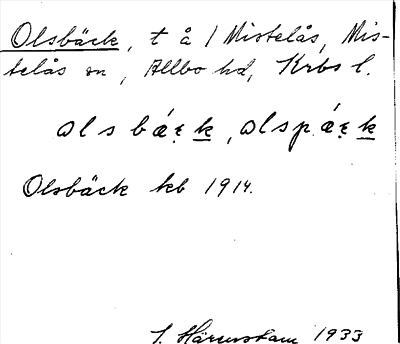 Olsbäck, t å / Mistelås, Mis-
telås sn, Allbo hd, Krbs l.
ɷls bǽ̨k, ɷlspǽ̨k
Olsbäck kb 1914.
Härenstam 1933